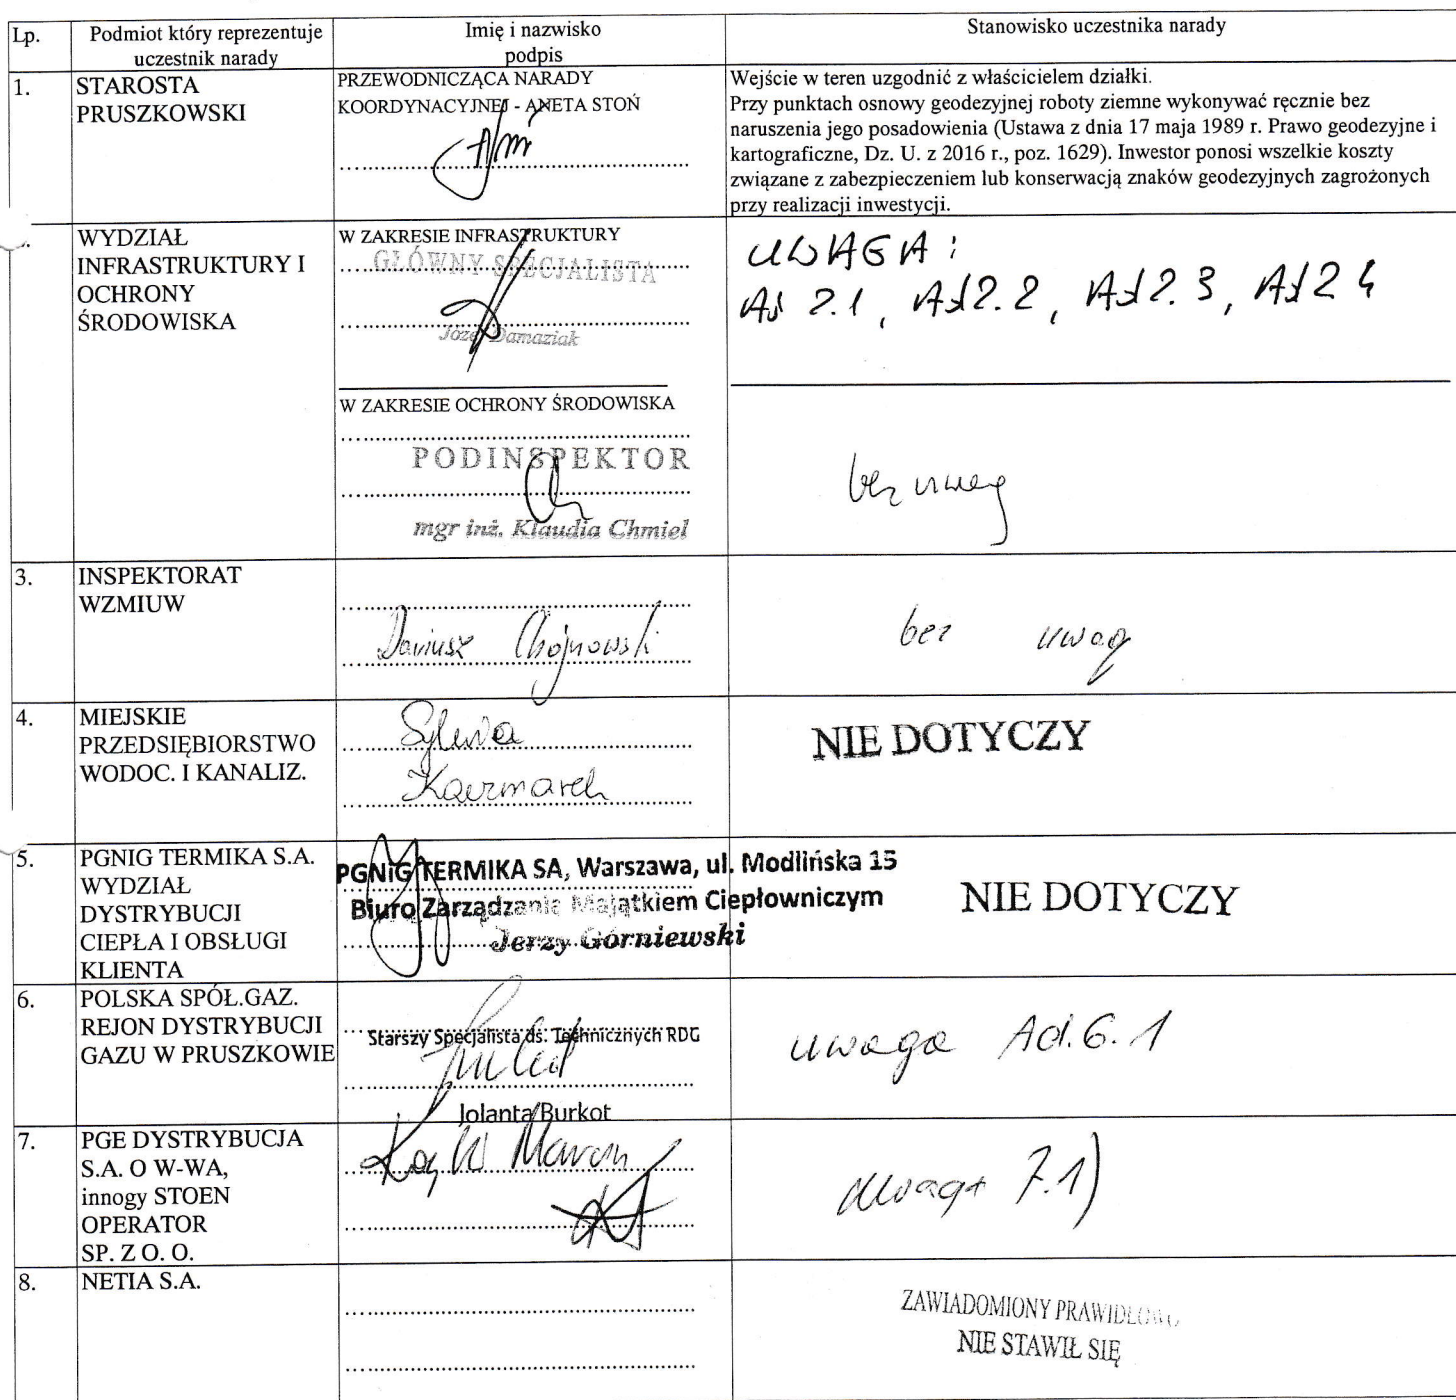 Lp.
Podmiot który reprezentuje
uczestnik narady
Imię i nazwisko
podpis
Stanowisko uczestnika narady
1.
STAROSTA
PRUSZKOWSKI
PRZEWODNICZĄCA NARADY
KOORDYNACYJNEJ - ANETA STOŃ
Wejście w teren uzgodnić z właścicielem działki.
Przy punktach osnowy geodezyjnej roboty ziemne wykonywać ręcznie bez
naruszenia jego posadowienia (Ustawa z dnia 17 maja 1989 r. Prawo geodezyjne i
kartograficzne, Dz. U. z 2016 r., poz. 1629). Inwestor ponosi wszelkie koszty
związane z zabezpieczeniem lub konserwacją znaków geodezyjnych zagrożonych
przy realizacji inwestycji.
WYDZIAŁ
INFRASTRUKTURY I
OCHRONY
ŚRODOWISKA
W ZAKRESIE INFRASTRUKTURY
GŁÓWNY SPECJALISTA
Józef Damaziak
UWAGA:
Ad 2.1, Ad 2.2, Ad 2.3, Ad 2 4
W ZAKRESIE OCHRONY ŚRODOWISKA
PODINSPEKTOR
mgr inż. Klaudia Chmiel
bez uwag
3.
INSPEKTORAT
WZMIUW
Dariusz Chojnowski
bez uwag
4.
MIEJSKIE
PRZEDSIĘBIORSTWO
WODOC. I KANALIZ.
Sylwia
Kaczmarek
NIE DOTYCZY
5.
PGNIG TERMIKA S.A.
WYDZIAŁ
DYSTRYBUCJI
CIEPŁA I OBSŁUGI
KLIENTA
PGNiG TERMIKA SA, Warszawa, ul. Modlińska 15
Biuro Zarządzania Majątkiem Ciepłowniczym
Jerzy Górniewski
NIE DOTYCZY
6.
POLSKA SPÓŁ.GAZ.
REJON DYSTRYBUCJI
GAZU W PRUSZKOWIE
Starszy Specjalista ds. Technicznych RDG
Jolanta Burkot
uwaga Ad.6.1
7.
PGE DYSTRYBUCJA
S.A. O W-WA,
innogy STOEN
OPERATOR
SP. Z O. O.
uwaga 7.1)
8.
NETIA S.A.
ZAWIADOMIONY PRAWIDŁOWO
NIE STAWIŁ SIĘ